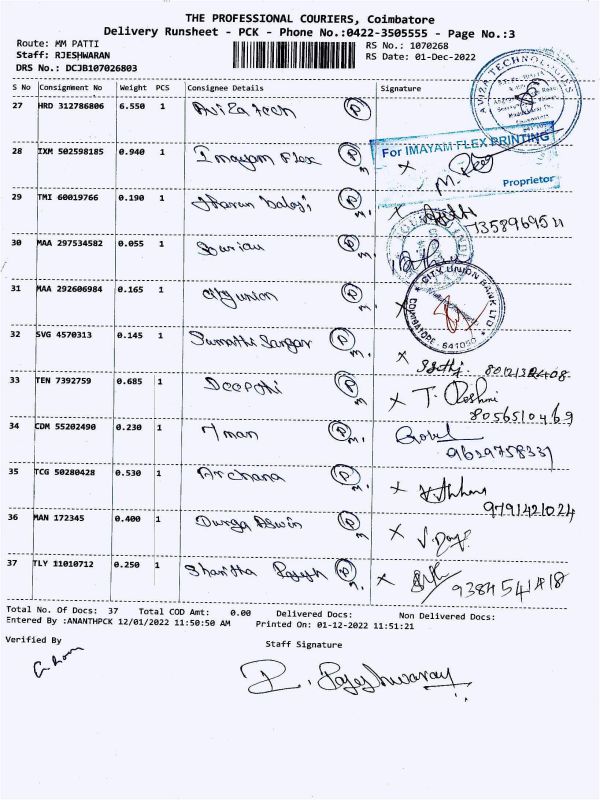 THE PROFESSIONAL COURIERS, Coimbatore
Delivery Runsheet - PCK - Phone No.:0422-3505555 - Page No.:3
Route: MM PATTI
Staff: RJESHWARAN
DRS No.: DCJB107026803
RS No.: 1070268
RS Date: 01-Dec-2022
S No Consignment No Weight PCS Consignee Details Signature
27 HRD 312786806 6.550 1 Aviza tech P
AVIZA TECHNOLOGIES
28 IXM 502598185 0.940 1 Imayam Flex P m
For IMAYAM FLEX PRINTING
Proprietor
29 TMI 60019766 0.190 1 P m. 7358969511
30 MAA 297534582 0.055 1 P m.
31 MAA 292606984 0.165 1 city union P m.
CITY UNION BANK LTD
COIMBATORE - 641050
32 SVG 4570313 0.145 1 Sumathi P m.
33 TEN 7392759 0.685 1 Deepthi P m. T. Roshni
8056510469
34 CDM 55202490 0.230 1 P m.
9629758331
35 TCG 50280428 0.530 1 Archana P m.
9791421024
36 MAN 172345 0.400 1 Durga Aswin P m
37 TLY 11010712 0.250 1 P m. 9384541418
Total No. Of Docs: 37 Total COD Amt: 0.00 Delivered Docs: Non Delivered Docs:
Entered By :ANANTHPCK 12/01/2022 11:50:50 AM Printed On: 01-12-2022 11:51:21
Verified By
Staff Signature
R. Rajeshwaran